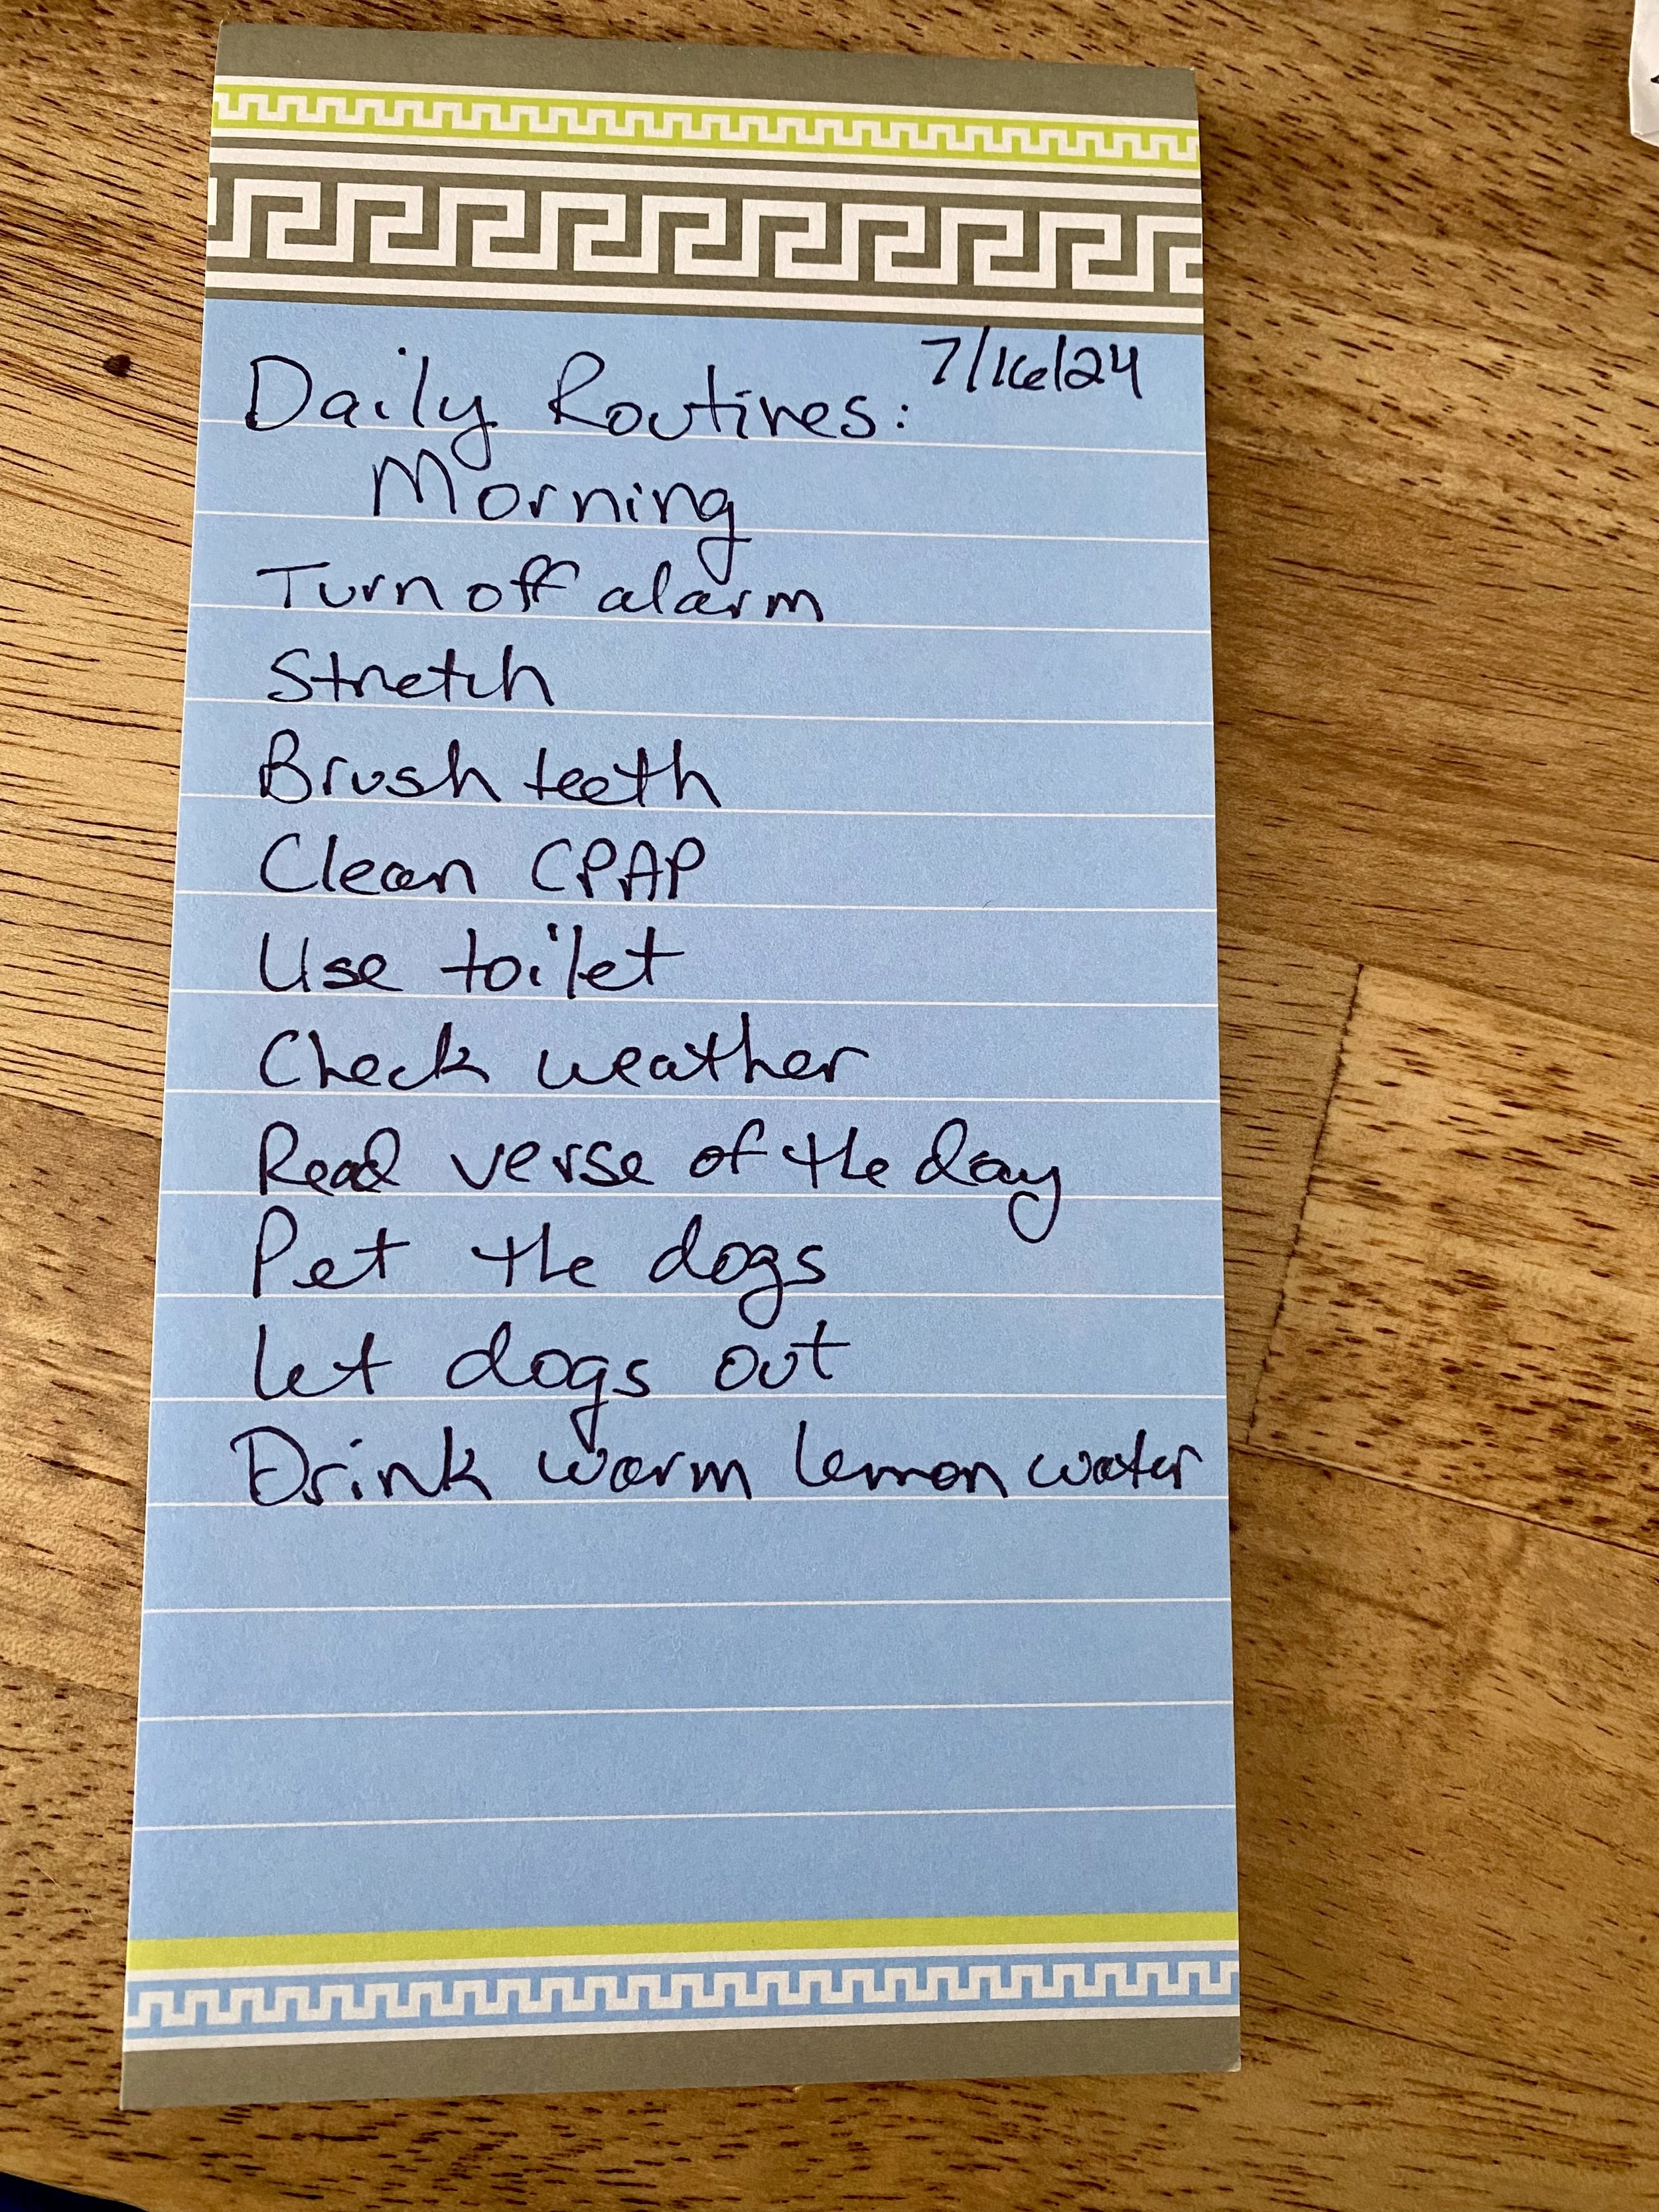 7/16/24
Daily Routines:
Morning
Turn off alarm
Stretch
Brush teeth
Clean CPAP
Use toilet
Check weather
Read verse of the day
Pet the dogs
Let dogs out
Drink warm lemon water